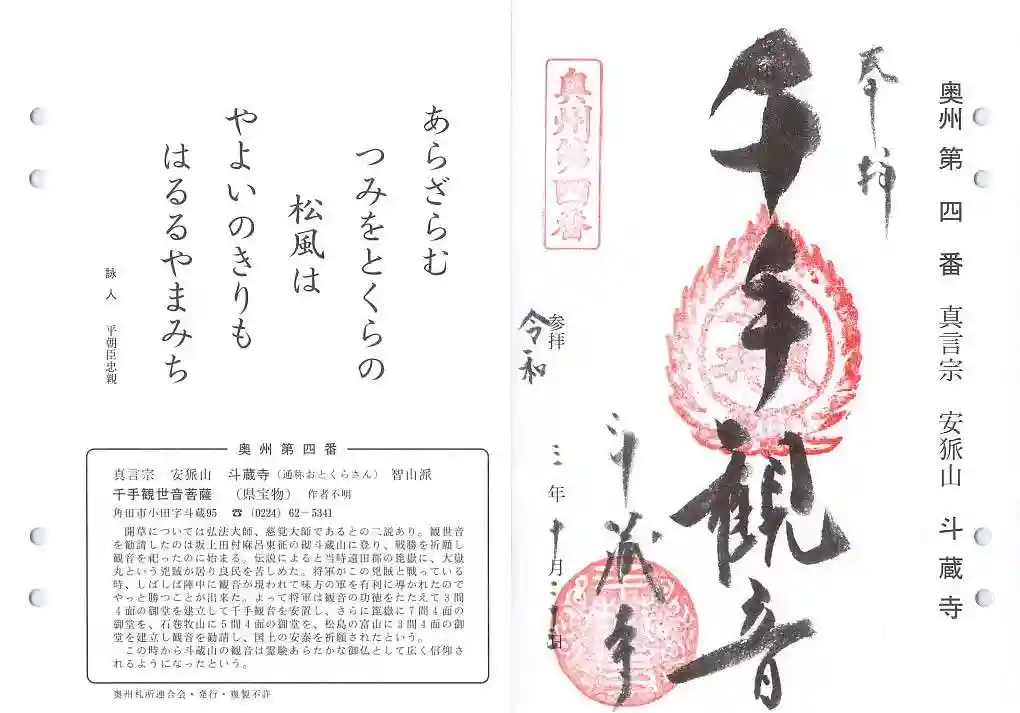 奥州第四番 真言宗 安狐山 斗蔵寺
奉拝
千手観音
斗蔵寺
奥州第四番
参拝
令和三年十月二十日
あらざらむ
つみをとくらの
松風は
やよいのきりも
はるるやまみち
詠人 平朝臣忠親
奥州第四番
真言宗 安狐山 斗蔵寺(通称おとくらさん) 智山派
千手観世音菩薩 (県宝物) 作者不明
角田市小田字斗蔵95 ☎ (0224) 62-5341
開草については弘法大師、慈覚大師であるとの二説あり。観世音
を勧請したのは坂上田村麻呂東征の砌斗蔵山に登り、戦勝を祈願し
観音を祀ったのに始まる。伝説によると当時遠田郡の箟嶽に、大嶽
丸という兇賊が居り良民を苦しめた。将軍がこの兇賊と戦っている
時、しばしば陣中に観音が現われて味方の軍を有利に導かれたので
やっと勝つことが出来た。よって将軍は観音の功徳をたたえて3間
4面の御堂を建立して千手観音を安置し、さらに箟嶽に7間4面の
御堂を、石巻牧山に5間4面の御堂を、松島の富山に3間4面の御
堂を建立し観音を勧請し、国土の安泰を祈願されたという。
この時から斗蔵山の観音は霊験あらたかな御仏として広く信仰さ
れるようになったという。
奥州札所連合会・発行・複製不許